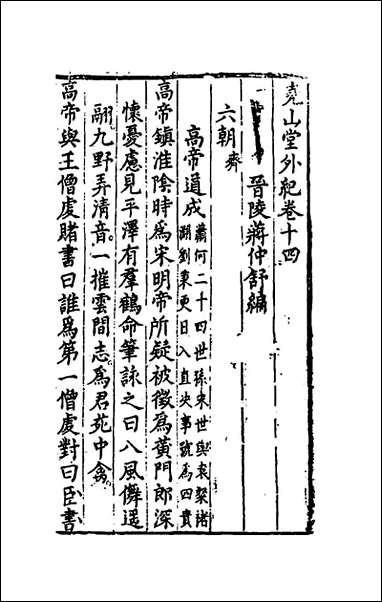 堯山堂外紀卷十四
晉陵蔣仲舒編
六朝 齊
高帝道成 蕭何二十四世孫宋世與袁粲諸
淵劉秉更日入直决事號爲四貴
高帝鎮淮陰時爲宋明帝所疑被徵爲黃門郎深
懷憂慮見平澤有羣鶴命筆詠之曰八風儛遥
翮九野弄清音。一摧雲間志爲君苑中禽。
高帝與王僧虔賭書曰誰爲第一僧虔對曰臣書